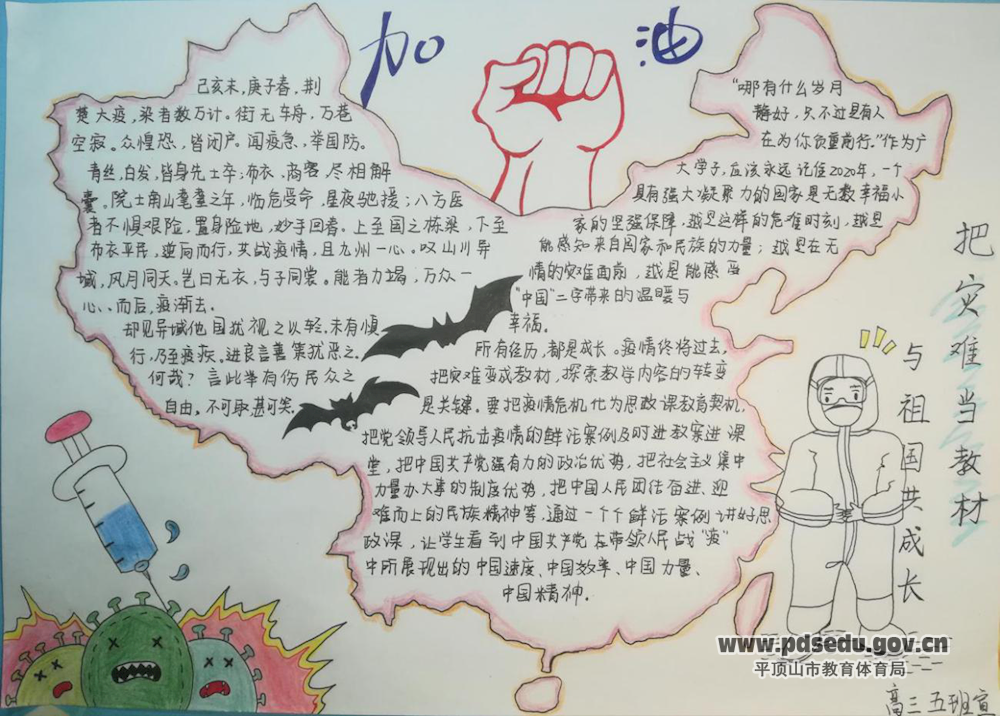 加油
己亥末，庚子春，荆
楚大疫，染者数万计。街无车舟，万巷
空寂。众惶恐，皆闭户。闻疫急，举国防。
青丝，白发，皆身先士卒；布衣、商客，尽相解
囊。院士南山耄耋之年，临危受命，星夜驰援；八方医
者不惧艰险，置身险地，妙手回春。上至国之栋梁，下至
布衣平民，逆向而行，共战疫情，且九州一心。叹山川异
域，风月同天。岂曰无衣，与子同裳。能者力竭，万众一
心，而后，疫渐去。
却见异域他国犹视之以轻，未有慎
行，乃至疫疾。进良言善策犹恶之。
何哉？言此举有伤民众之
自由。不可取甚可笑。
“哪有什么岁月
静好，只不过是有人
在为你负重前行。”作为广
大学子，应该永远记住2020年，一个
具有强大凝聚力的国家是无数幸福小
家的坚强保障，越是这样的危难时刻，越是
能感知来自国家和民族的力量；越是在无
情的灾难面前，越是能感受
“中国”二字带来的温暖与
幸福。
所有经历，都是成长。疫情终将过去，
把灾难变成教材，探索教学内容的转变
是关键。要把疫情危机化为思政课教育契机，
把党领导人民抗击疫情的鲜活案例及时进教案进课
堂，把中国共产党强有力的政治优势，把社会主义集中
力量办大事的制度优势，把中国人民团结奋进、迎
难而上的民族精神等，通过一个个鲜活案例讲好思
政课，让学生看到中国共产党在带领人民战“疫”
中所展现出的中国速度、中国效率、中国力量、
中国精神。
把灾难当教材
与祖国共成长
www.pdsedu.gov.cn
平顶山市教育体育局
高三五班宣